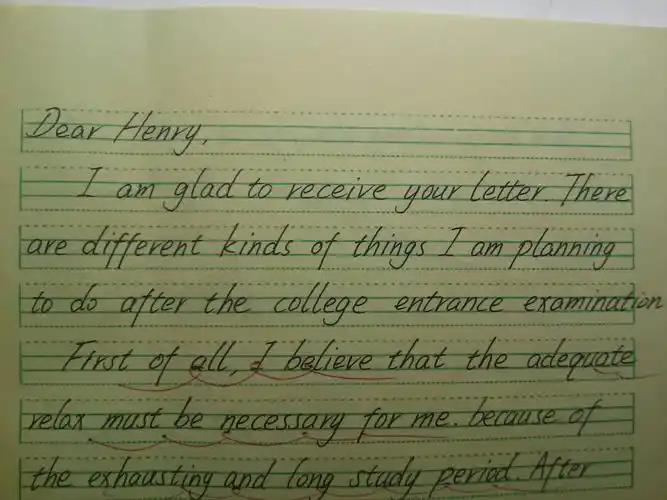 Dear Henry,
I am glad to receive your letter. There
are different kinds of things I am planning
to do after the college entrance examination
First of all, I believe that the adequate
relax must be necessary for me. because of
the exhausting and long study period. After